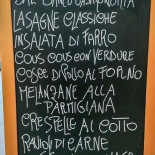 LASAGNE CLASSICHE
INSALATA DI FARRO
COUS COUS CON VERDURE
COSCE DI POLLO AL FORNO
MELANZANE ALLA
PARTIGIANA
CRESTELLE AL COTTO
RAVIOLI DI CARNE